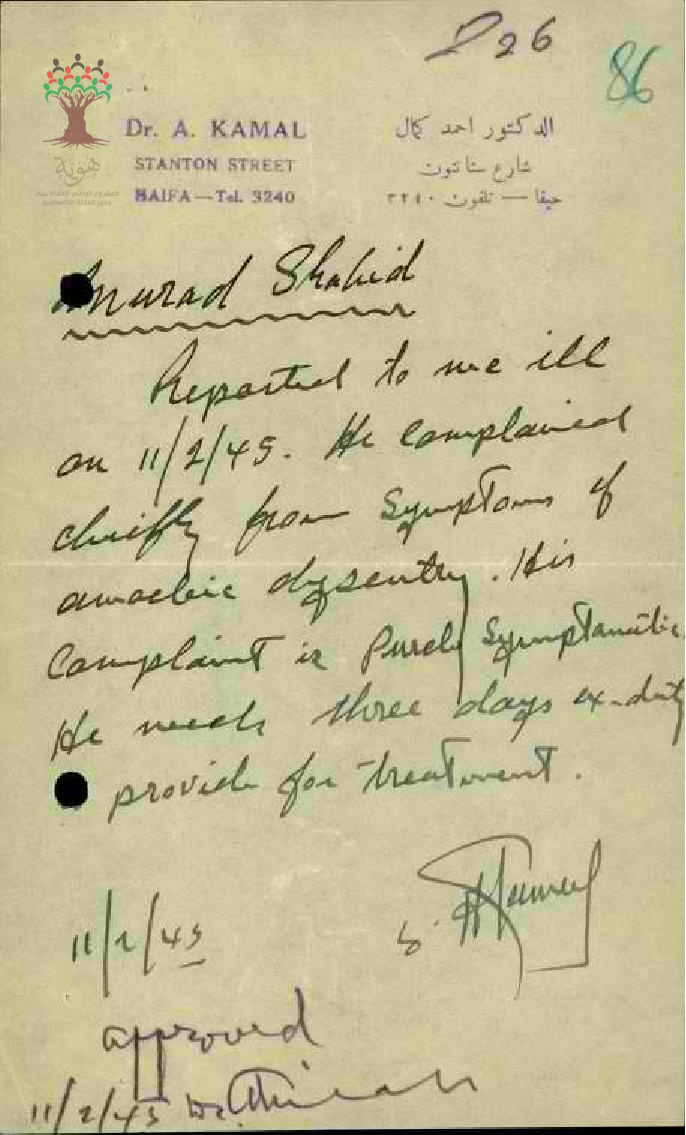 D26
86
Dr. A. KAMAL
STANTON STREET
HAIFA — Tel. 3240
الدكتور احمد كمال
شارع ستانتون
حيفا — تلفون ٣٢٤٠
هوية
Murad Shahid
Reported to me ill
on 11/2/45. He complained
chiefly from symptoms of
amoebic dysentry. His
complaint is purely symptomatic.
He needs three days ex-duty
provide for treatment.
11/2/45
approved
11/2/45 Dr.